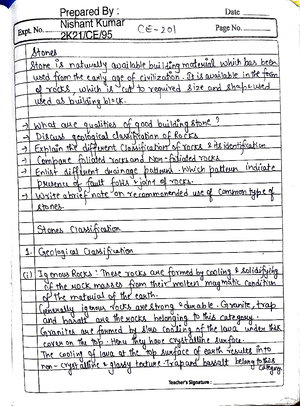 Prepared By :
Nishant Kumar
2K21/CE/95
Expt. No.
CE-201
Date
Page No.
Stones
Stone is naturally available building material which has been
used from the early age of civilization. It is available in the form
of rocks, which is cut to required size and shape used
used as building block.
→ What are qualities of good building stone ?
→ Discuss geological classification of Rocks
→ Explain the different Classification of rocks & its identification
→ Compare foliated rocks and Non-foliated rocks.
→ Enlist different drainage pattern. Which pattern indicate
presence of fault folds & joint of rocks.
→ Write a brief note on recommended use of common type of
stones.
Stones Classification
1. Geological Classification
(i) Igenous Rocks: These rocks are formed by cooling & solidifying
of the rock masses from their molten magmatic condition
of the material of the earth.
Generally igenous rocks are strong & durable. Granite, trap
and basalt are the rocks belonging to this category.
Granites are formed by slow cooling of the lava under thic
cover on the top. Hence they have crystalline surface.
The cooling of lava at the top surface of earth results into
non-crystalline & glassy texture. Trap and basalt belong to this
category.
Teacher's Signature :